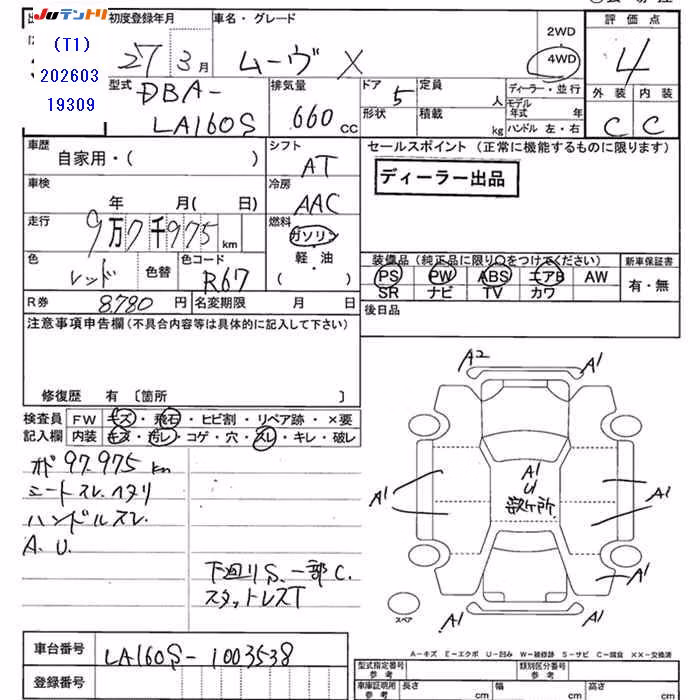 Juテントリ
(T1)
202603
19309
初度登録年月
27 3月
車名・グレード
ムーヴ X
2WD
4WD
評価点
4
型式
DBA-
LA160S
排気量
660 cc
ドア
5
形状
定員
人
積載
kg
ディーラー・並行
モデル
年式 年
ハンドル 左・右
外装 内装
C C
車歴
自家用・( )
シフト
AT
セールスポイント (正常に機能するものに限ります)
ディーラー出品
車検
年 月( 日)
冷房
AAC
走行
9万7千975 km
燃料
ガソリン
軽・油
( )
色
レッド
色替
色コード
R67
装備品 (純正品に限り○をつけてください)
PS PW ABS エアB AW
SR ナビ TV カワ
新車保証書
有・無
R券 8,780 円
名変期限 月 日
後日品
注意事項申告欄 (不具合内容等は具体的に記入して下さい)
修復歴 有 〔箇所 〕
検査員
記入欄
FW キズ・飛石・ヒビ割・リペア跡・×要
内装 キズ・汚レ・コゲ・穴・スレ・キレ・破レ
オド 97.975 km
シートスレ.ヘタリ
ハンドルスレ.
A.U.
下廻りS.一部C.
スタットレスT
A2
A1
A1
A1
A1
U1
数ヶ所.
A1
A1
A1
スペア
A1
A-キズ E-エクボ U-凹み W-補修跡 S-サビ C-腐食 XX-交換済
車台番号
LA160S-1003538
登録番号
型式指定番号
参考
類別区分番号
参考
車庫証明用
参考
長さ cm
幅 cm
高さ cm